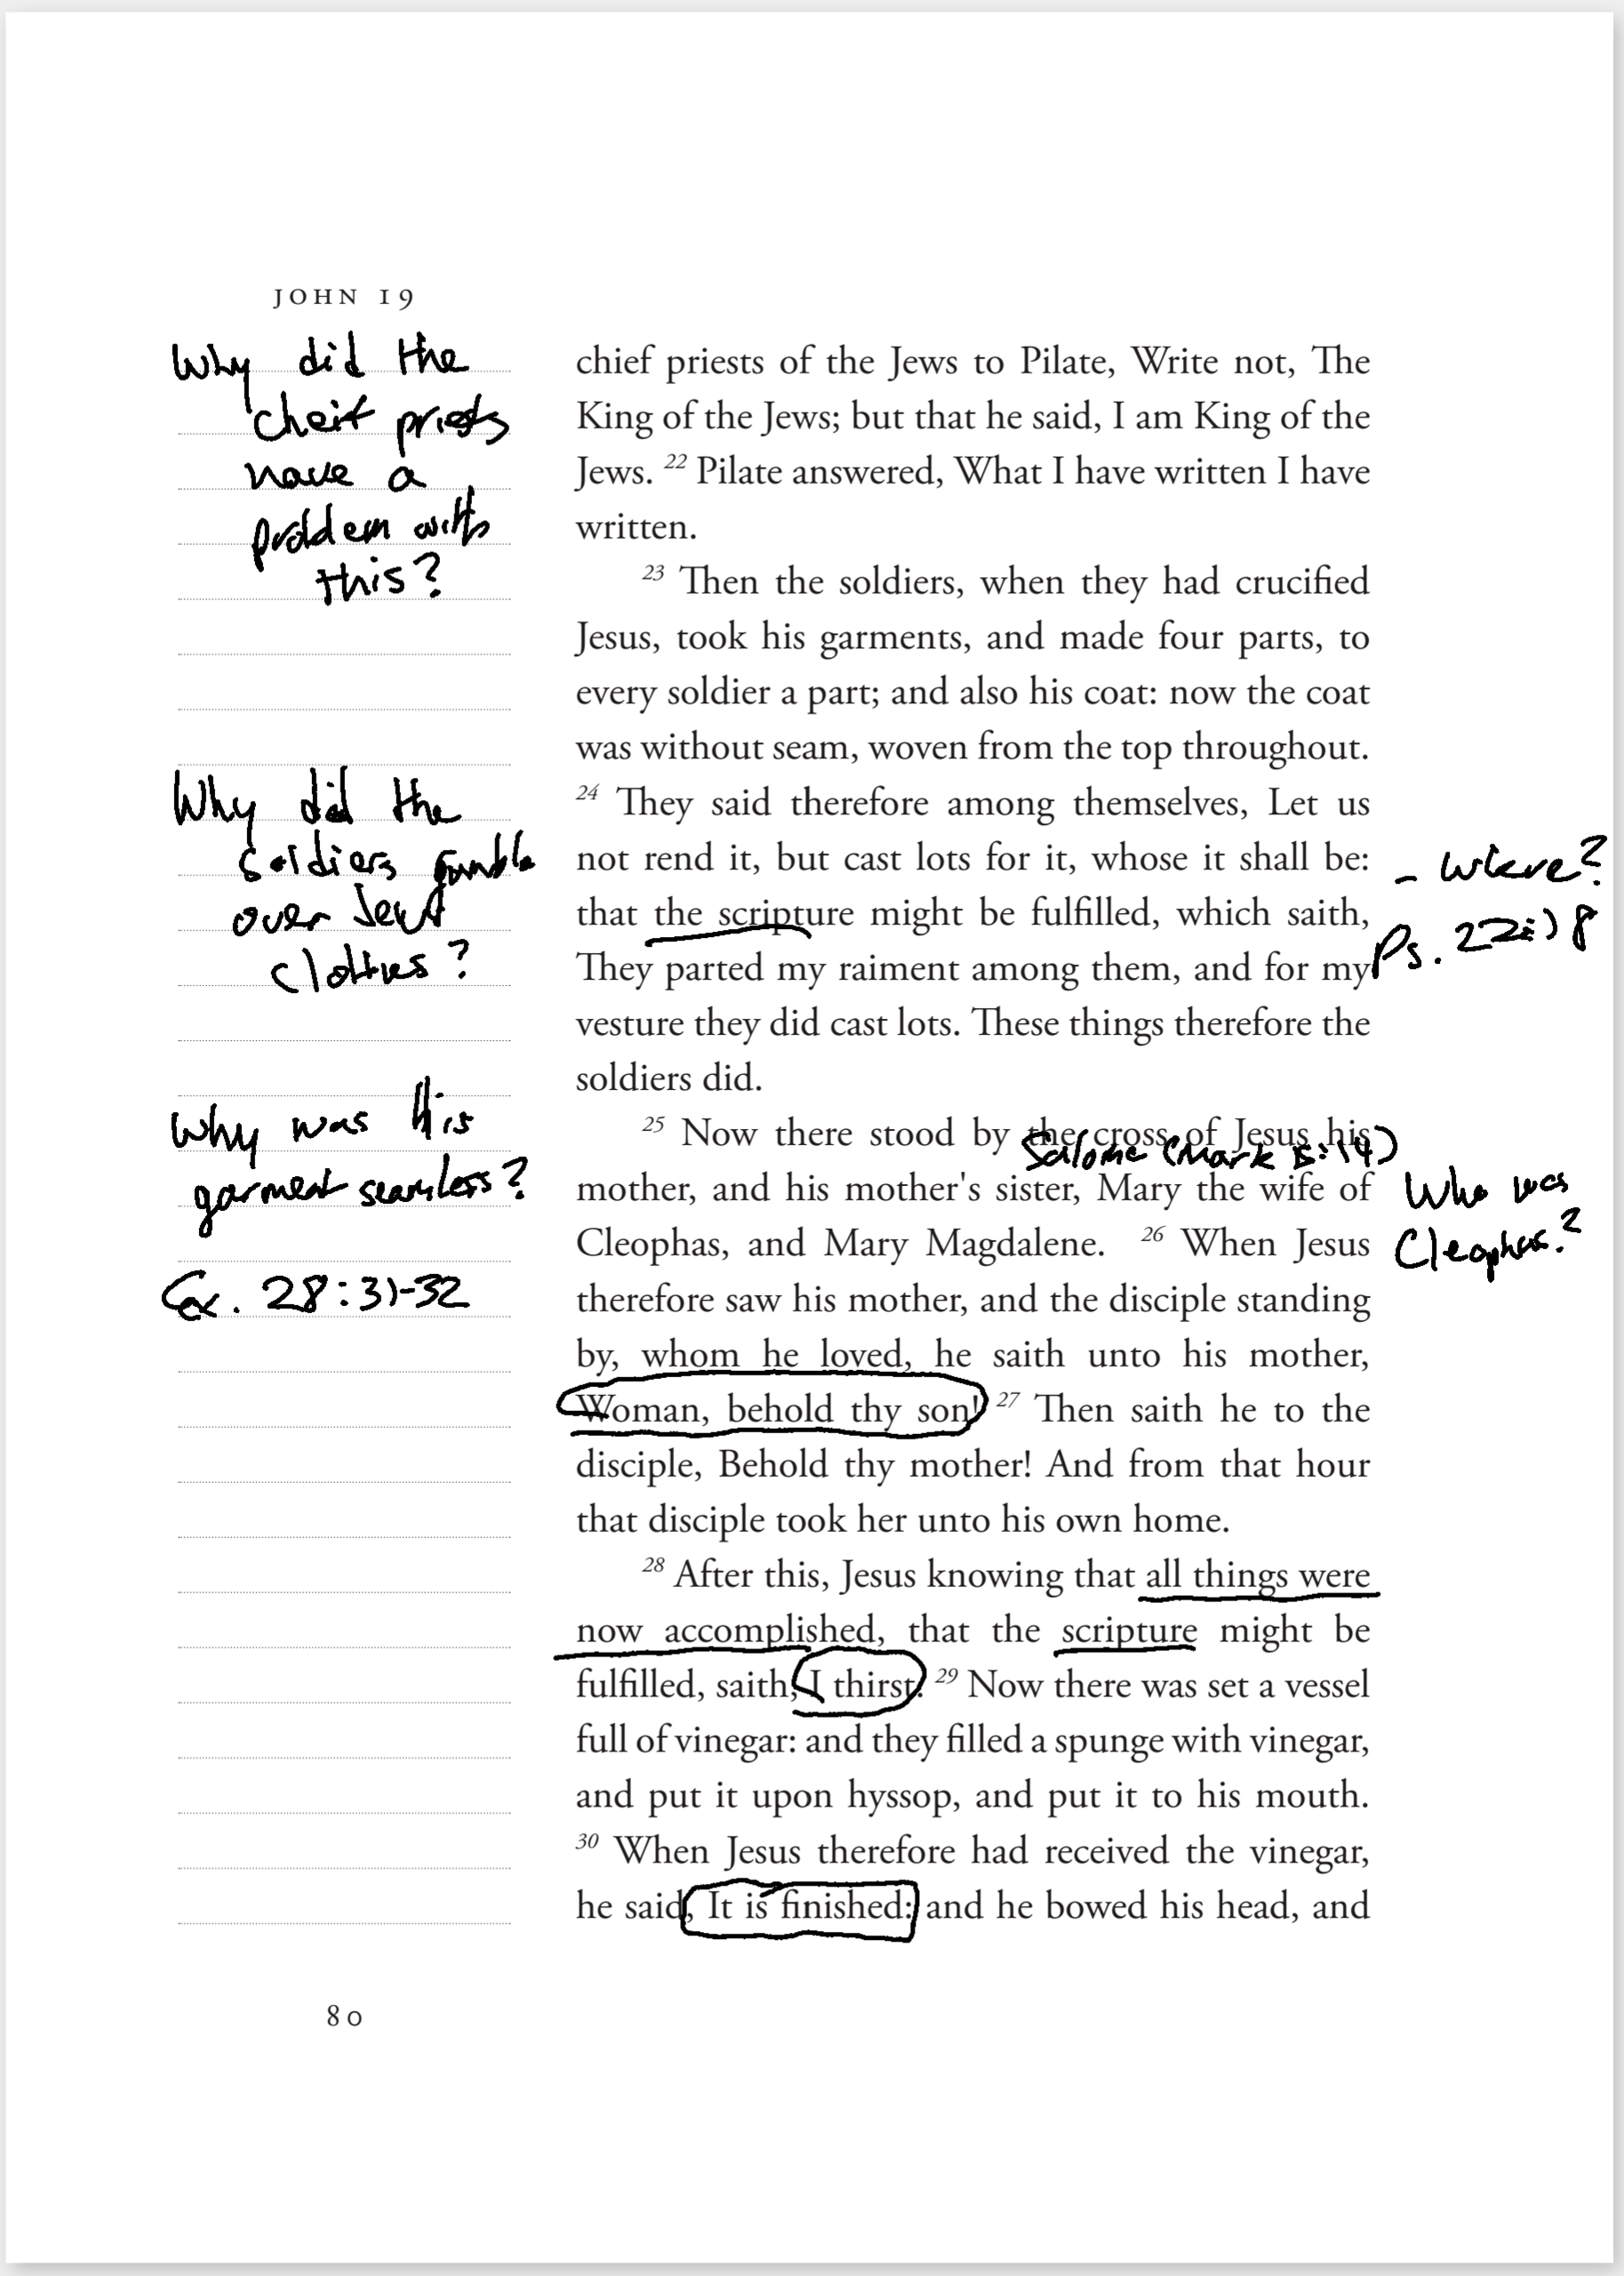 JOHN 19
Why did the
cheif priests
have a
problem with
this?
Why did the
soldiers gamble
over Jesus'
clothes?
Why was this
garment seamless?
Ex. 28:31-32
chief priests of the Jews to Pilate, Write not, The
King of the Jews; but that he said, I am King of the
Jews. 22 Pilate answered, What I have written I have
written.
23 Then the soldiers, when they had crucified
Jesus, took his garments, and made four parts, to
every soldier a part; and also his coat: now the coat
was without seam, woven from the top throughout.
24 They said therefore among themselves, Let us
not rend it, but cast lots for it, whose it shall be:
- where?
that the scripture might be fulfilled, which saith,
Ps. 22:18
They parted my raiment among them, and for my
vesture they did cast lots. These things therefore the
soldiers did.
25 Now there stood by the cross of Jesus his
Salome (Mark
mother, and his mother's sister, Mary the wife of
Who was
Cleophas, and Mary Magdalene. 26 When Jesus
Cleophas?
therefore saw his mother, and the disciple standing
by, whom he loved, he saith unto his mother,
Woman, behold thy son! 27 Then saith he to the
disciple, Behold thy mother! And from that hour
that disciple took her unto his own home.
28 After this, Jesus knowing that all things were
now accomplished, that the scripture might be
fulfilled, saith, I thirst. 29 Now there was set a vessel
full of vinegar: and they filled a spunge with vinegar,
and put it upon hyssop, and put it to his mouth.
30 When Jesus therefore had received the vinegar,
he said, It is finished: and he bowed his head, and
80